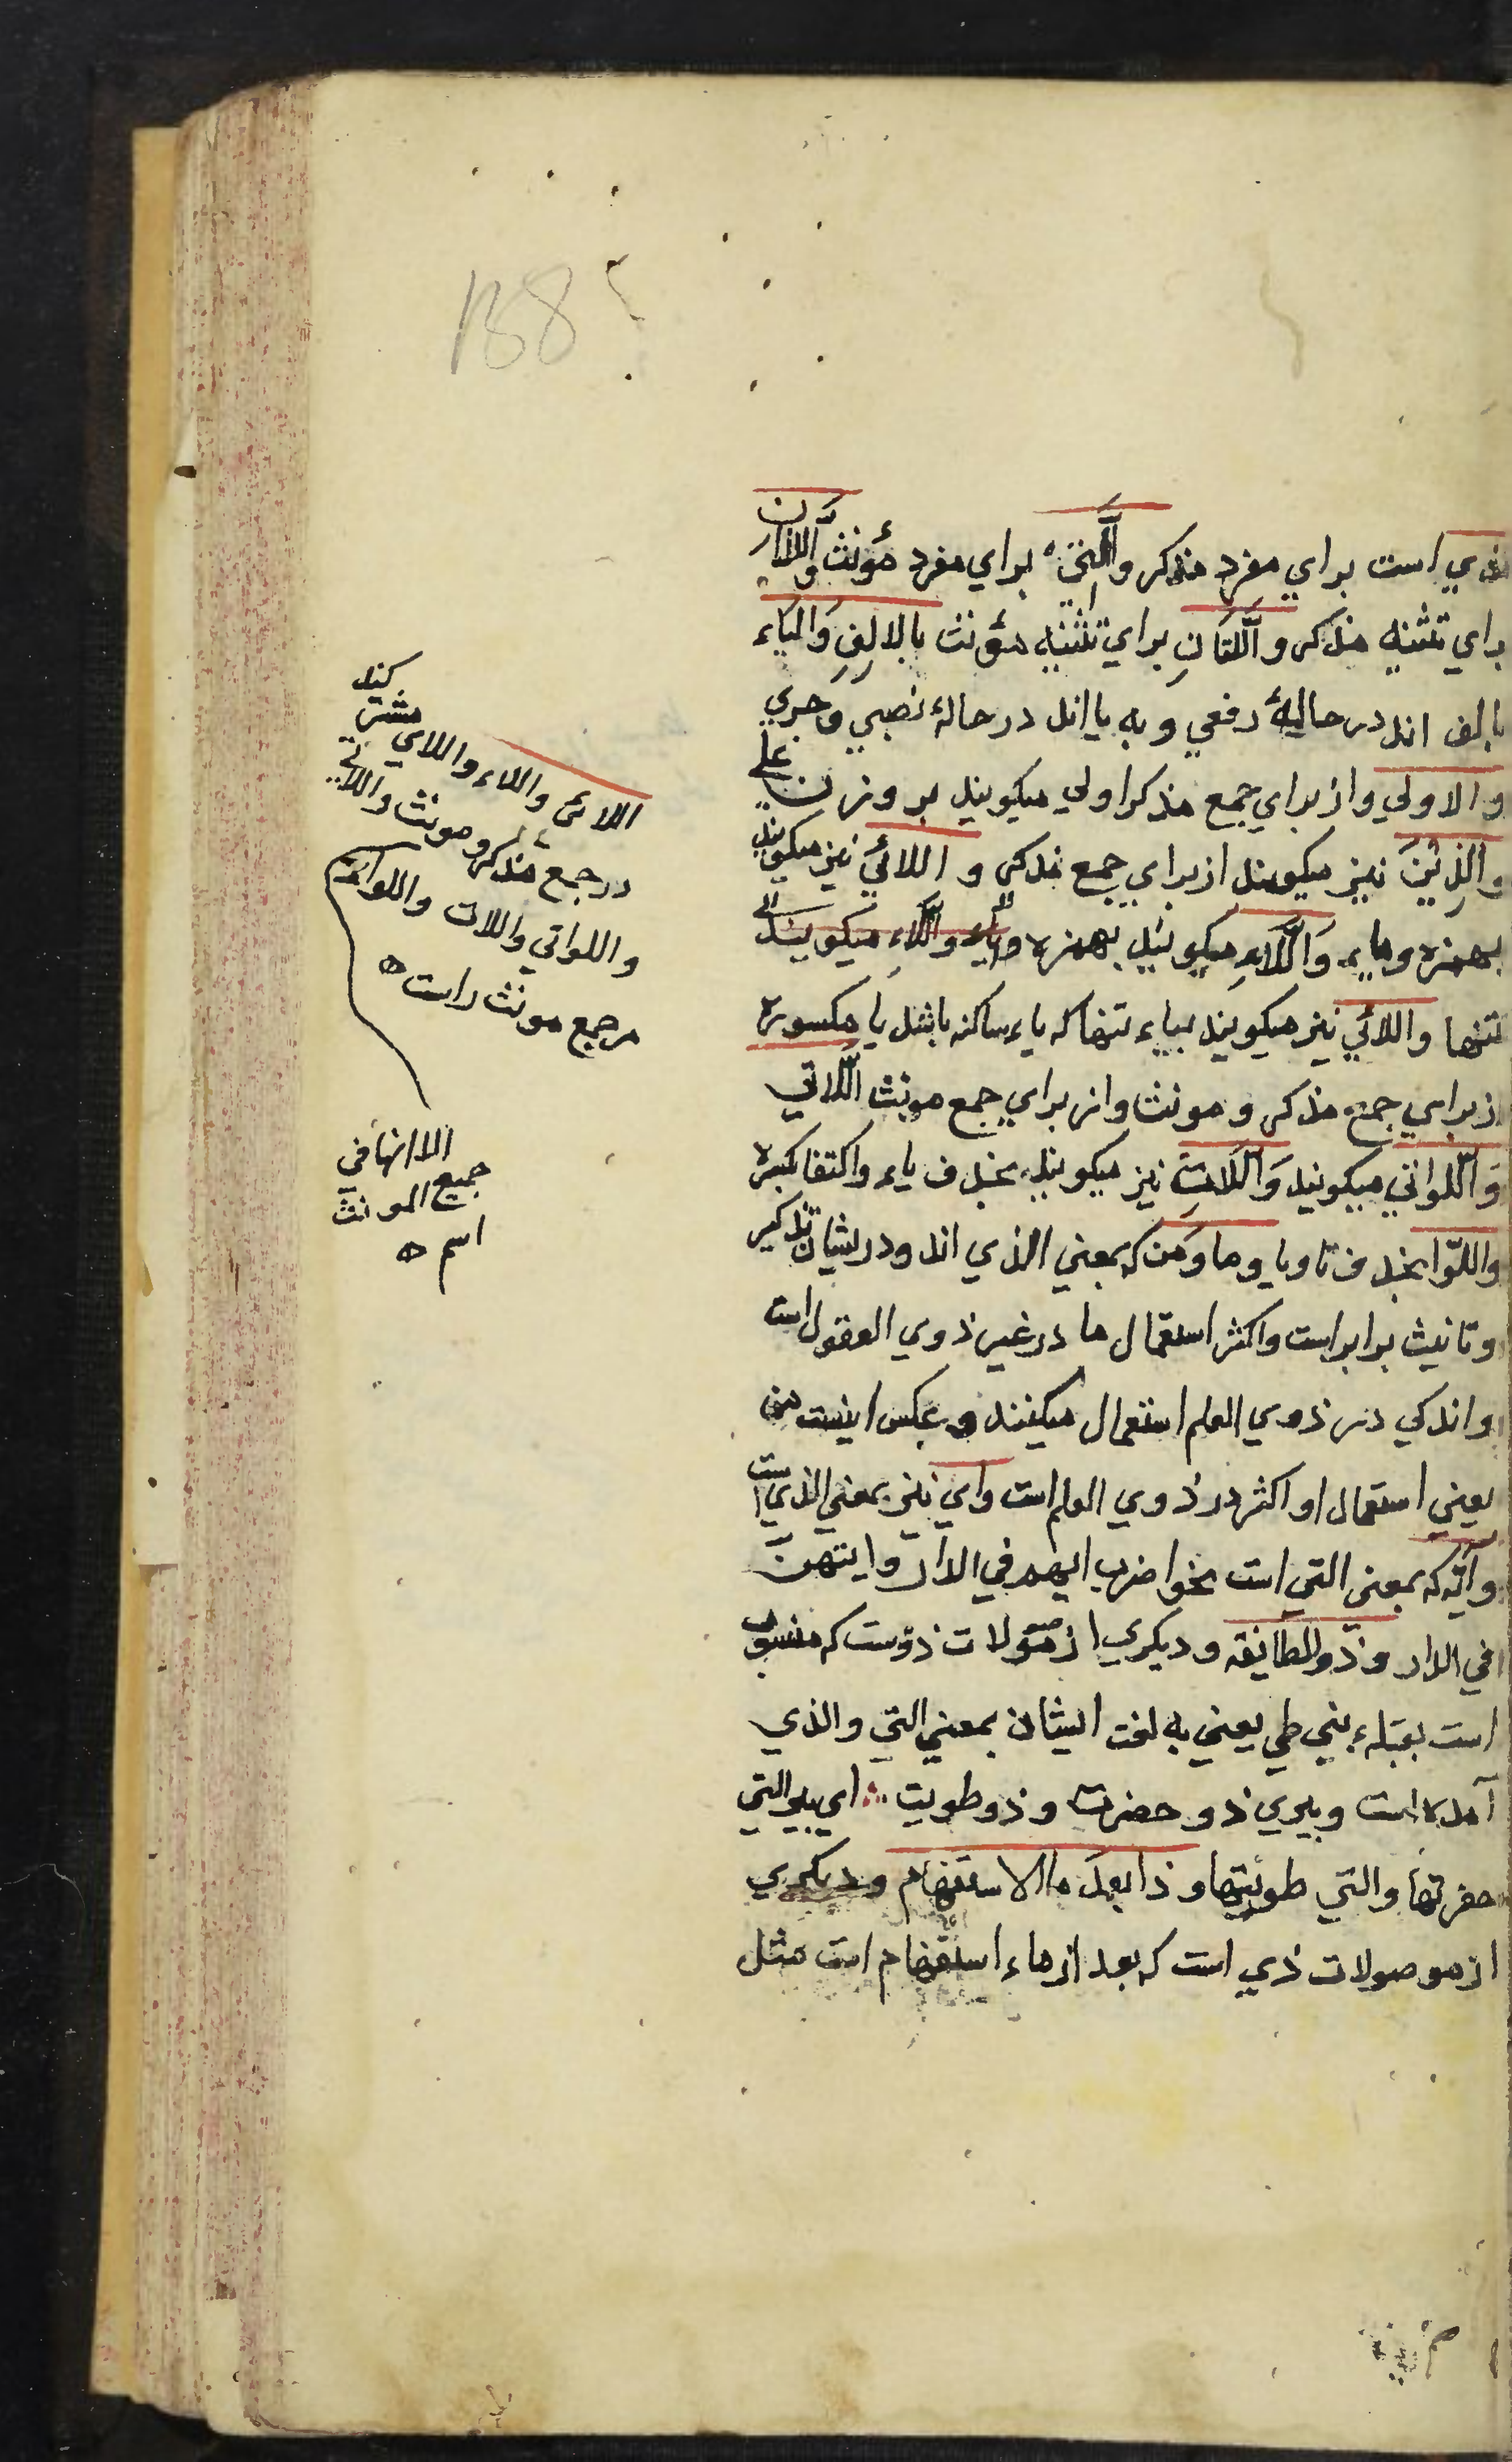 138
لذي است براي مفرد مذكر والَّتي براي مفرد مؤنث واللذان
براي تثنيه مذكر واَلَّلتَانِ براي تثنيه مؤنث بالالِفِ وَاليَاء
بالف اند در حاليهٔ رفعي و به يا اند در حالهٔ نصبي وجري
والاولي واز براي جمع مذكر اولي ميكويند بر وزن علي
والذِيْنَ نيز ميكويند از براي جمع مذكر و اللائي نيز ميكويند
بهمزه وياء وَاَللَّاءِ ميكويند بهمزه وللَّاء واللَّاءِ ميكويند
تنها واللائي نيز ميكويند بياء تنها كه ياء ساكنه باشد يا مكسوره
از براي جمع مذكر و مونث واز براي جمع مونث اللَّاتي
وَاللَّواتي ميكويند وَاللَّاتِ نيز ميكويند بحذف ياء واكتفا بكسره
واللّوا بحذف تا ويا وما وَمَن كه بمعني الذي اند ودر يشان تذكير
وتانيث برابر است واكثر استعمال ما در غير ذوي العقول است
واندكي در ذوي العلم استعمال ميكنند و عكس اينست من
يعني استعمال او اكثر در ذوي العلم است واي نيز بمعني الذي است
وايّه كه بمعني التي است نحو اضرب ايهم في الدار وايتهن
في الدار وذو الطائيه و ديكري از موصولات ذوست كه منسوب
است بقبيلهء بني طي يعني به لغت ايشان بمعني التي والذي
آمده است وبيري ذو حضرت وذو طويت ؞ اي بيري التي
حفرتها والتي طويتها وذا بعدَ ما الاستفهام وديكري
از موصولات ذي است كه بعد از ماء استفهام است مثل
اللائي واللاء واللاي مشترك كنيد
در جمع مذكر و مونث واللاتي
واللواتي واللات واللوات
مر جمع مونث راست ه
الا انها في
جميع المونث
اسم ه